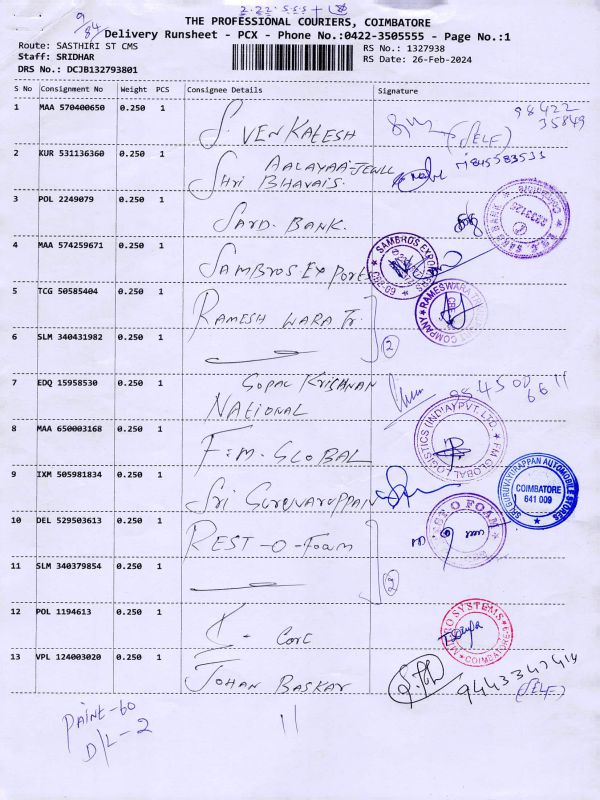 9/84
THE PROFESSIONAL COURIERS, COIMBATORE
Delivery Runsheet - PCX - Phone No.:0422-3505555 - Page No.:1
Route: SASTHIRI ST CMS
Staff: SRIDHAR
DRS No.: DCJB132793801
RS No.: 1327938
RS Date: 26-Feb-2024
S No Consignment No Weight PCS Consignee Details Signature
1 MAA 570400650 0.250 1 S. VENKATESH (SELF) 98422 35849
2 KUR 531136360 0.250 1 AALAYAA JEWLL
SHri BHAVAIS.
3 POL 2249079 0.250 1 SARD. BANK.
4 MAA 574259671 0.250 1 SAMBROS Export SAMBROS EXPORTS
5 TCG 50585404 0.250 1 RAMESH WARA Tr. RAMESWARA TRANSPORT COMPANY
6 SLM 340431982 0.250 1 2
7 EDQ 15958530 0.250 1 GOPAL KRISHNAN
NATIONAL
8 MAA 650003168 0.250 1 F.M. GLOBAL FM GLOBAL LOGISTICS (INDIA) PVT. LTD.
9 IXM 505981834 0.250 1 Sri GURUVAROPPAN SRI GURUVAYURAPPAN AUTOMOBILE STORES
COIMBATORE
641 009
10 DEL 529503613 0.250 1 REST-O-Foam
11 SLM 340379854 0.250 1 2
12 POL 1194613 0.250 1 COIMBATORE
13 VPL 124003020 0.250 1 JOHAN BASKAR 9443347414
(SELF)
PAINT-60
D/L-2
11